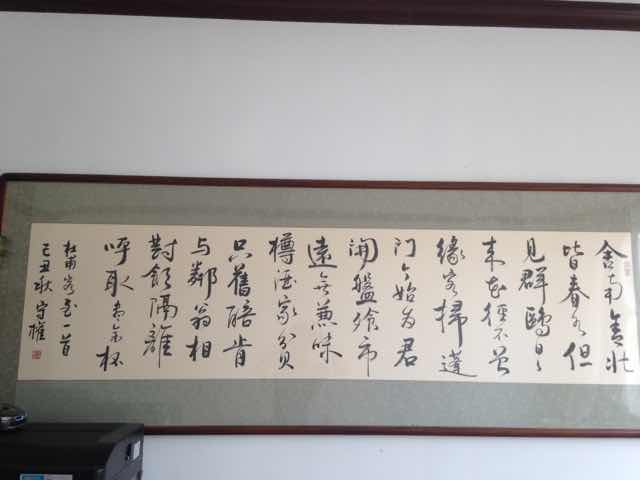 舍南舍北
皆春水但
見群鷗日〻
来花徑不曾
緣客掃蓬
门今始为君
開盤飧市
遠無兼味
樽酒家貧
只舊醅肯
与鄰翁相
對飲隔離
呼取盡余杯
杜甫客至一首
己丑秋 守權